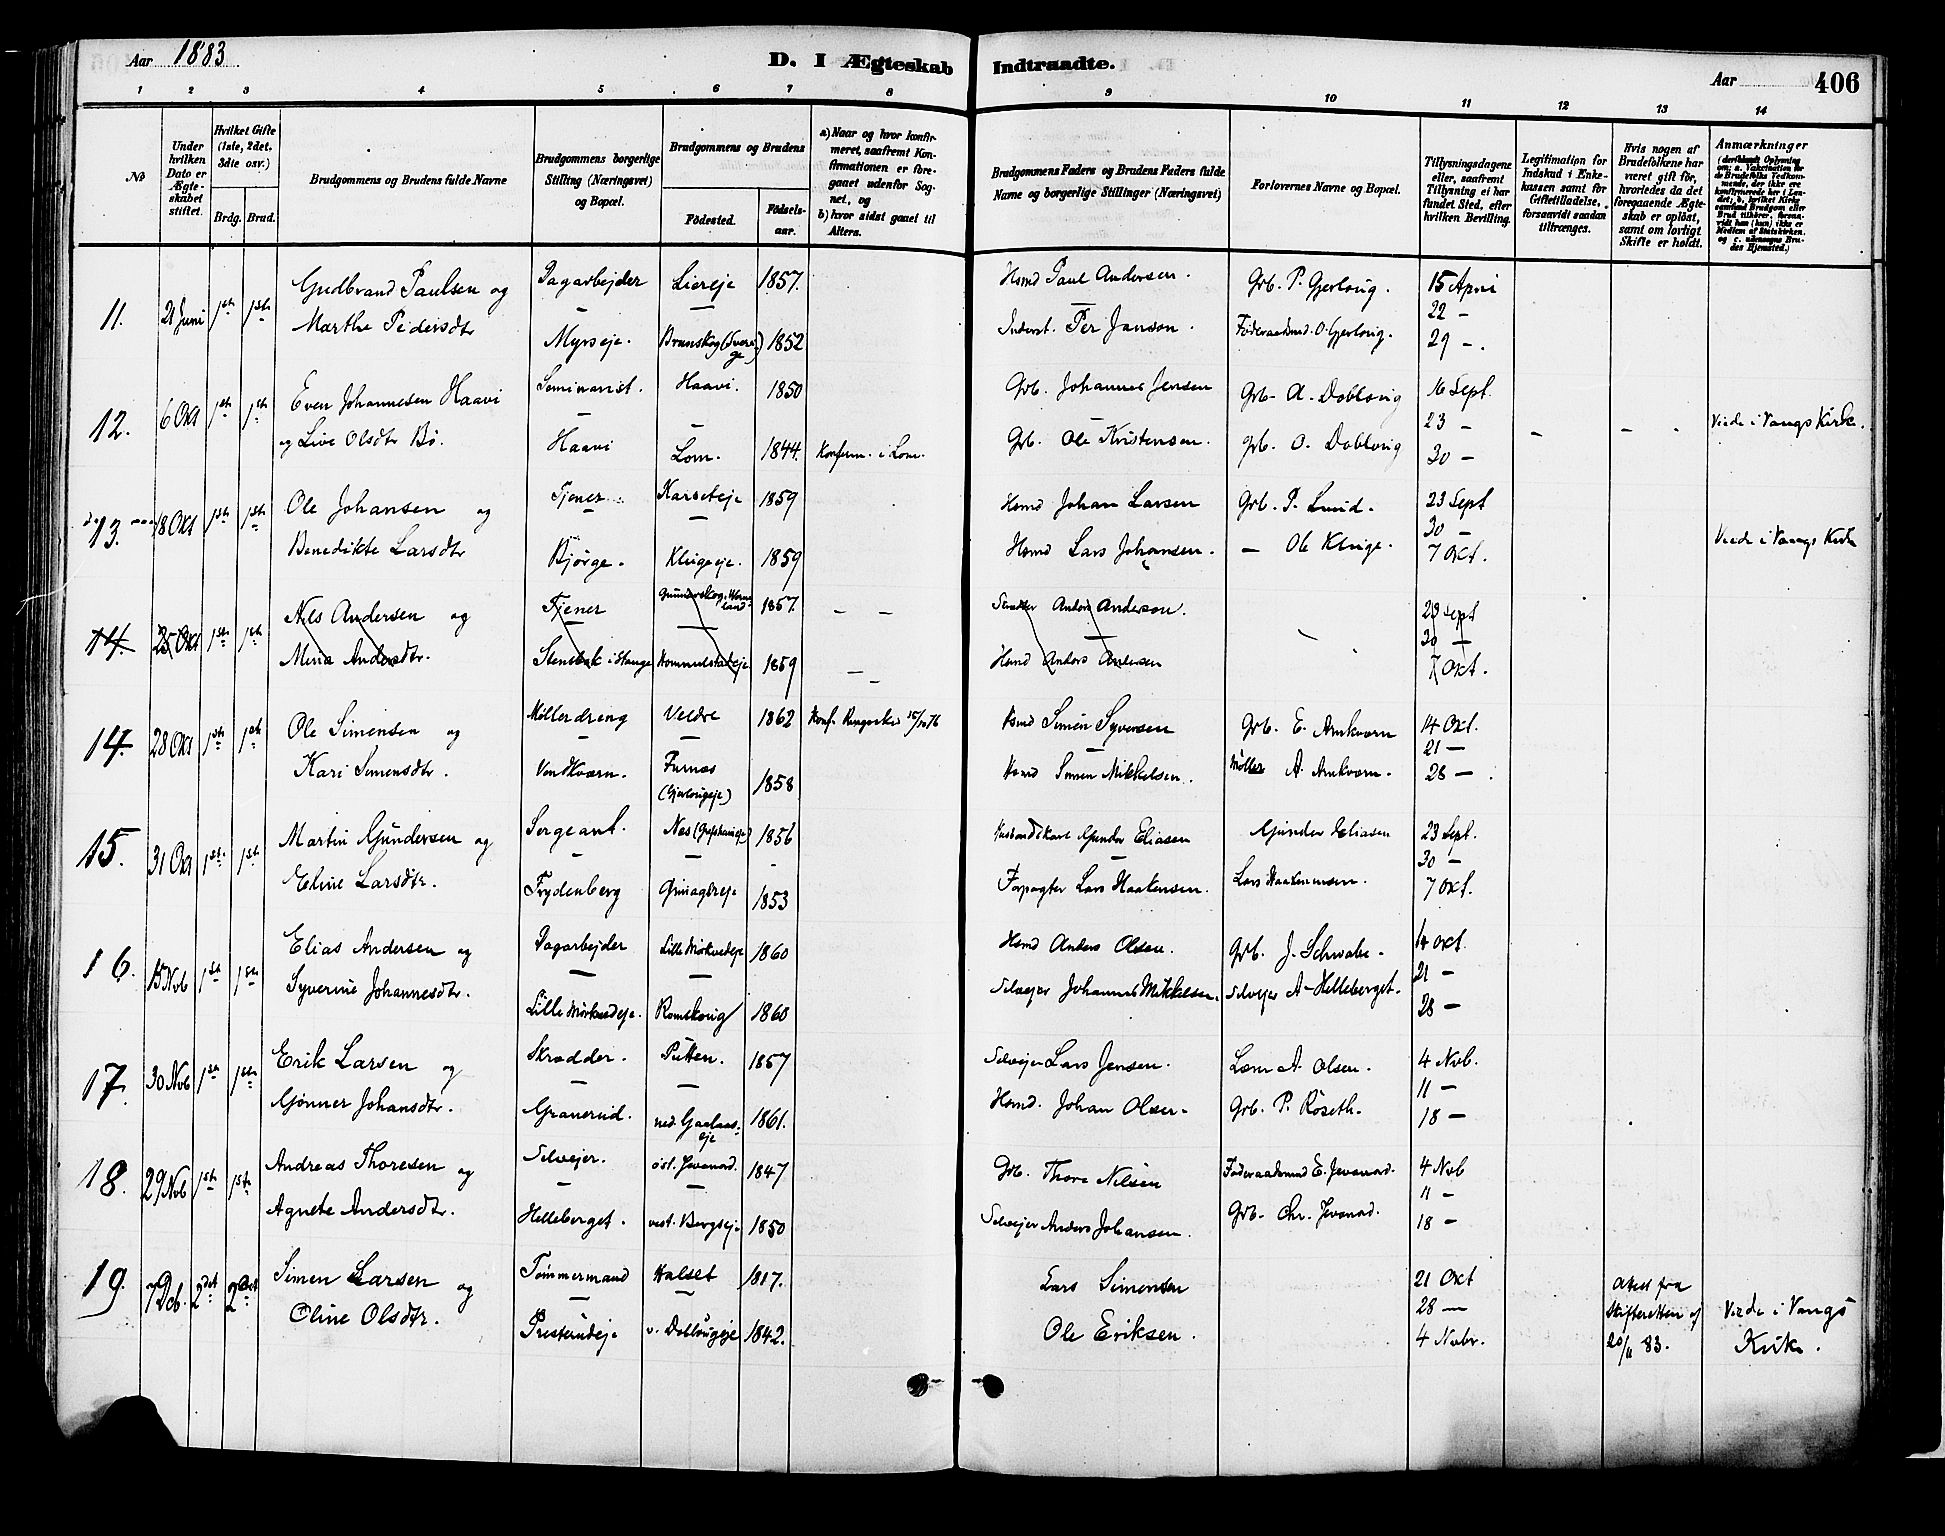 Aar 1883
D. I Ægteskab Indtraadte.
Aar 406
1 2 3 4 5 6 7 8 9 10 11 12 13 14
No
Under hvilken Dato er Ægteskabet stiftet.
Hvilket Gifte (1ste, 2det, 3die osv.)
Brdg. Brud.
Brudgommens og Brudens fulde Navne
Brudgommens borgerlige Stilling (Næringsvei) og Bopœl.
Brudgommens og Brudens
Födested.
Födselsaar.
a) Naar og hvor konfirmeret, saafremt Konfirmationen er foregaaet udenfor Sognet, og
b) hvor sidst gaaet til Alters.
Brudgommens Faders og Brudens Faders fulde Navne og borgerlige Stillinger (Næringsvei)
Forlovernes Navne og Bopœl.
Tillysningsdagene eller, saafremt Tillysning ei har fundet Sted, efter hvilken Bevilling.
Legitimation for Indskud i Enkekassen samt for Giftetilladelse, forsaavidt saadan tiltrænges.
Hvis nogen af Brudefolkene har været gift för, hvorledes da det foregaaende Ægteskab er oplöst, samt om lovligt Skifte er holdt.
Anmærkninger
11. 21 Juni 1ste 1ste Gudbrand Paulsen og Dagarbejder Liereje 1857. Hsmd Paul Andersen. Grb. P. Gjerlovig. 15 April
22 –
Marthe Pedersdtr Myrseje. Brunskog (Sverige) 1852 Inderst. Per Janson. Föderaadsmd. O. Gjerlovig. 29 –.
12. 6 Okt 1ste 1ste Even Johannesen Haavi Seminarist. Haavi. 1850 Grb. Johannes Jensen Grb. A. Doblovig 16 Sept.
23 – Viede i Vangs Kirke.
og Live Olsdtr Bö. Haavi Lom. 1844. Konferm. i Lom. Grb. Ole Kristensen. grb. O. Doblovig 30 –
13. 18 Okt 1ste 1ste Ole Johansen og Tjener Karseteje 1859 Hsmd Johan Larsen Grb. P. Lund. 23 Sept
30 – Viede i Vangs Kirke
Benedikte Larsdtr Bjørge. Klugeje. 1859 Hsmd Lars Johansen. – Ole Kluge. 7 Okt.
14. 25 Okt 1ste 1ste Nils Andersen og Tjener 1857. – – Anders Anderson. 23 Sept
30 –
Mina Andersdtr. Stensbak i Stange 1859 – – Hsmd Anders Andersen 7 Okt.
14. 28 Okt 1ste 1ste Ole Simensen og Møllerdreng Veldre 1862 Konf. Ringsaker 15/10 76 Hsmd Simen Syversen Grb. E. Arnkværn 14 Okt.
21 –
Kari Simensdtr. Vendkværn. Furnæs (Gjerlovigeje) 1858 Hsmd Simen Mikkelsen. Møller A. Arnkværn. 28 –.
15. 31 Okt 1ste 1ste Martin Gundersen og Sergeant. Næs 1856 Gunder Eliasen Gunder Eliasen 23 Sept.
30 –
Eline Larsdtr. Frydenberg 1853 Forpagter Lars Haakensen. Lars Haakensen. 7 Okt.
16. 15 Nvb 1ste 1ste Elias Andersen og Dagarbejder Lille Mörkvedeje 1860 Hsmd Anders Olsen. Grb. J. Schwabe. 14 Okt.
21 –
Syverine Johannesdtr. Lille Mörkvedeje. Romskovig 1860 Selvejer Johannes Mikkelsen. Selvejer A. Helleberget. 28 –
17. 30 Nvb 1ste 1ste Erik Larsen og Skrædder. Putten. 1857 Selvejer Lars Jensen. A. Olsen. 4 Nvb.
11 –
Gønner Johansdtr. Granerud. ned. Gaalaaseje 1861. Hsmd. Johan Olsen. Grb. P. Röseth. 18 –
18. 29 Nvb 1ste 1ste Andreas Thoresen og Selvejer. öst. Jevanord. 1847 Grb. Thore Nilsen Föderaadsmd E. Jevanord. 4 Nvb
11 –
Agnete Andersdtr. Helleberget. vest. Bergseje 1850 Selvejer Anders Johansen. Grb. Chr. Jevanord. 18 –
19. 7 Dcb. 2det 2det Simen Larsen og Tömmermand Halset 1817. Lars Simensen 21 Okt Attest fra
28 – Skifteretten af Viede i Vangs
Oline Olsdtr. Presterudeje v. Doblougeje 1842. Ole Eriksen. 4 Nvbr. 20/11 83. Kirke.